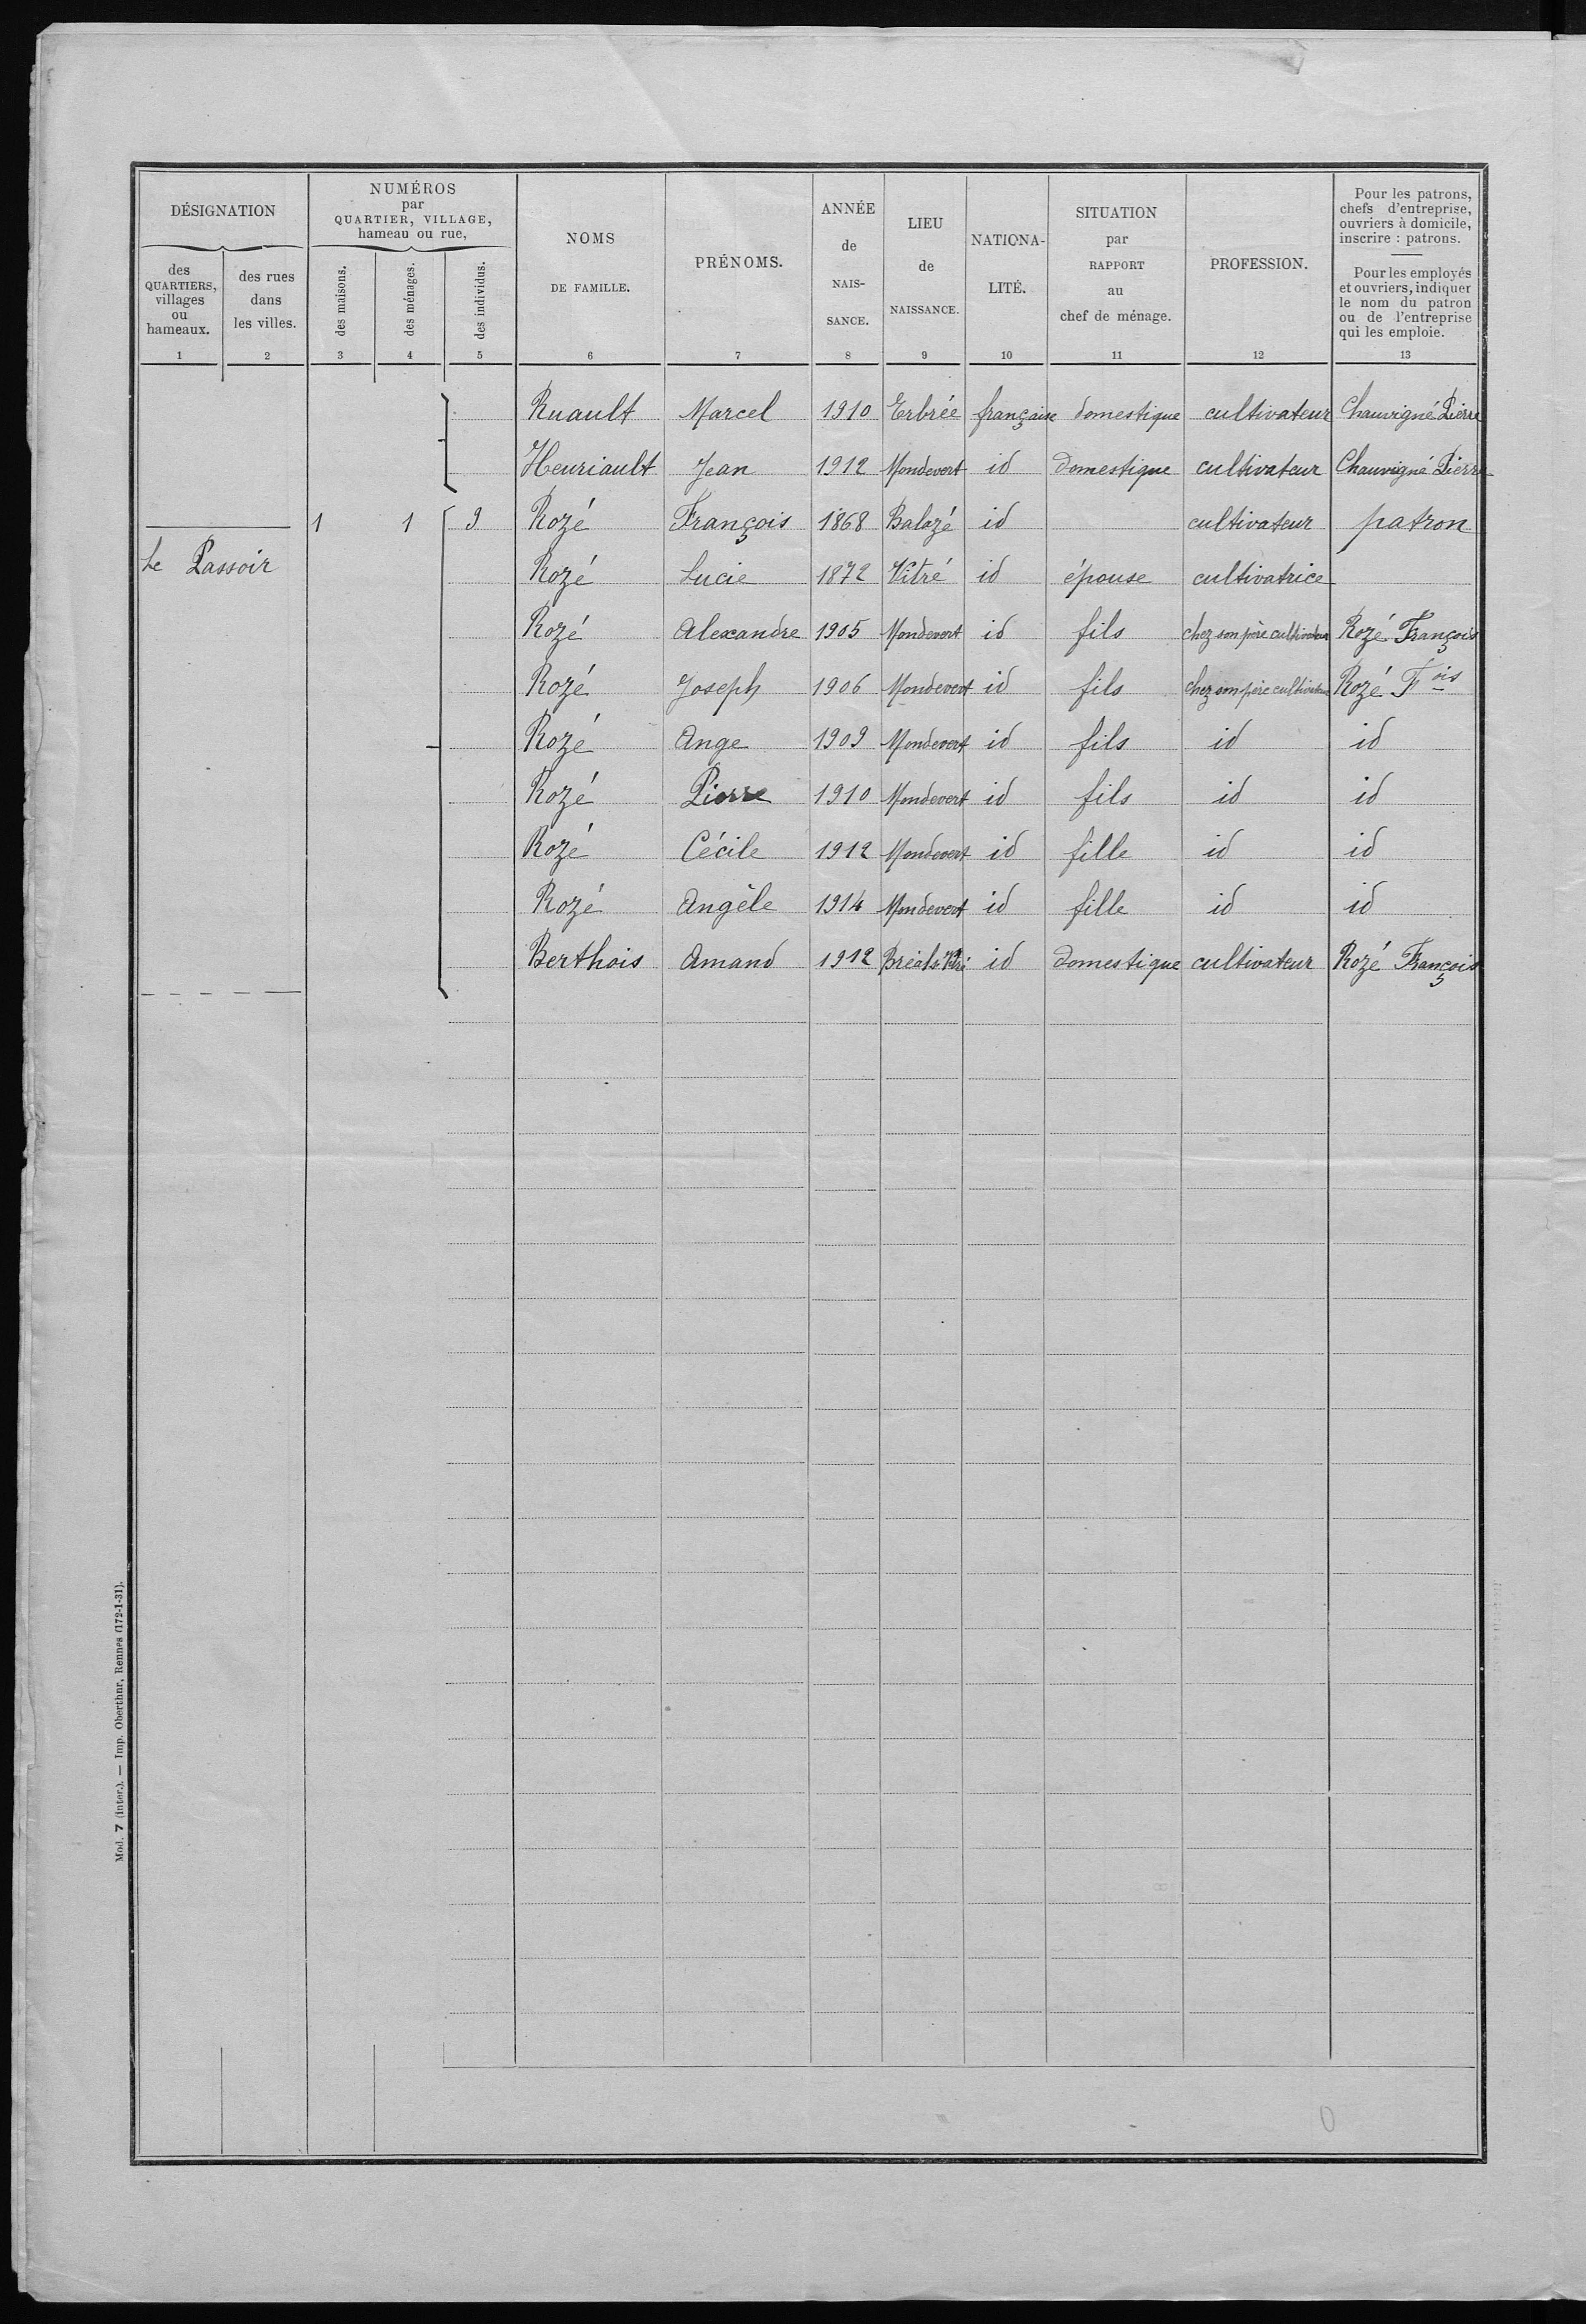 DÉSIGNATION
NUMÉROS
par
QUARTIER, VILLAGE,
hameau ou rue,
des
QUARTIERS,
villages
ou
hameaux.
des rues
dans
les villes.
des maisons.
des ménages.
des individus.
NOMS
DE FAMILLE.
PRÉNOMS.
ANNÉE
de
NAIS-
SANCE.
LIEU
de
NAISSANCE.
NATIONA-
LITÉ.
SITUATION
par
RAPPORT
au
chef de ménage.
PROFESSION.
Pour les patrons,
chefs d'entreprise,
ouvriers à domicile,
inscrire : patrons.
Pour les employés
et ouvriers, indiquer
le nom du patron
ou de l'entreprise
qui les emploie.
1 2 3 4 5 6 7 8 9 10 11 12 13
Ruault Marcel 1910 Erbrée française domestique cultivateur Chauvigné Pierre
Heuriault Jean 1912 Mondevert id domestique cultivateur Chauvigné Pierre
1 1 9 Rozé François 1868 Balazé id cultivateur patron
Le Passoir Rozé Lucie 1872 Vitré id épouse cultivatrice
Rozé Alexandre 1905 Mondevert id fils chez son père cultivateur Rozé François
Rozé Joseph 1906 Mondevert id fils chez son père cultivateur Rozé Fois
Rozé Ange 1909 Mondevert id fils id id
Rozé Pierre 1910 Mondevert id fils id id
Rozé Cécile 1912 Mondevert id fille id id
Rozé Angèle 1914 Mondevert id fille id id
Berthois Amand 1912 Bréal s. Vitré id domestique cultivateur Rozé François
Mod. 7 (inter.). — Imp. Oberthur, Rennes (172-1-31).
0